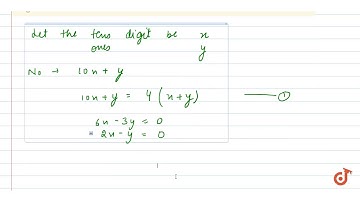 Let the tens digit be x
ones y
No → 10x + y
10x + y = 4 (x + y) ——— ①
6x - 3y = 0
= 2x - y = 0